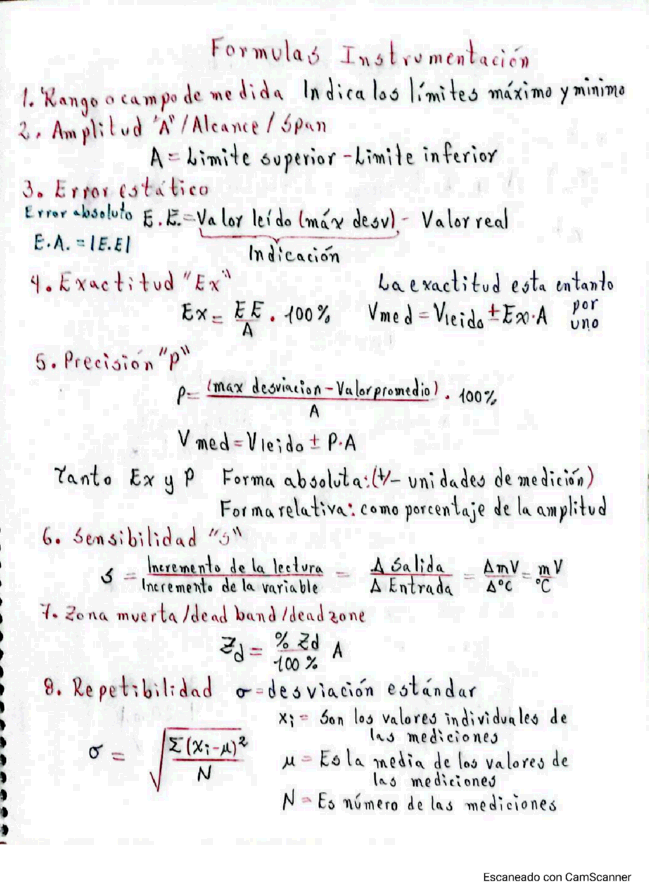 Formulas Instrumentación
1. Rango o campo de medida Indica los límites máximo y mínimo
2. Amplitud "A"/Alcance/Span
A = Limite superior - Limite inferior
3. Error estático
Error absoluto E.E. = Valor leído (máx desv) - Valor real
E.A. = |E.E| Indicación
4. Exactitud "Ex" La exactitud esta entanto
Ex = EE/A . 100% Vmed = Vleido ± Ex.A por uno
5. Precisión "P"
P = (max desviacion - Valor promedio)/A . 100%
Vmed = Vleido ± P.A
Tanto Ex y P Forma absoluta: (+/- unidades de medición)
Forma relativa: como porcentaje de la amplitud
6. Sensibilidad "S"
S = Incremento de la lectura/Incremento de la variable = Δ Salida/Δ Entrada = ΔmV/Δ°C = mV/°C
7. Zona muerta/dead band/dead zone
Zd = % Zd/100 % A
8. Repetibilidad σ = desviación estándar
xi = Son los valores individuales de
las mediciones
σ = √(Σ(xi-μ)²/N) μ = Es la media de los valores de
las mediciones
N = Es número de las mediciones
Escaneado con CamScanner